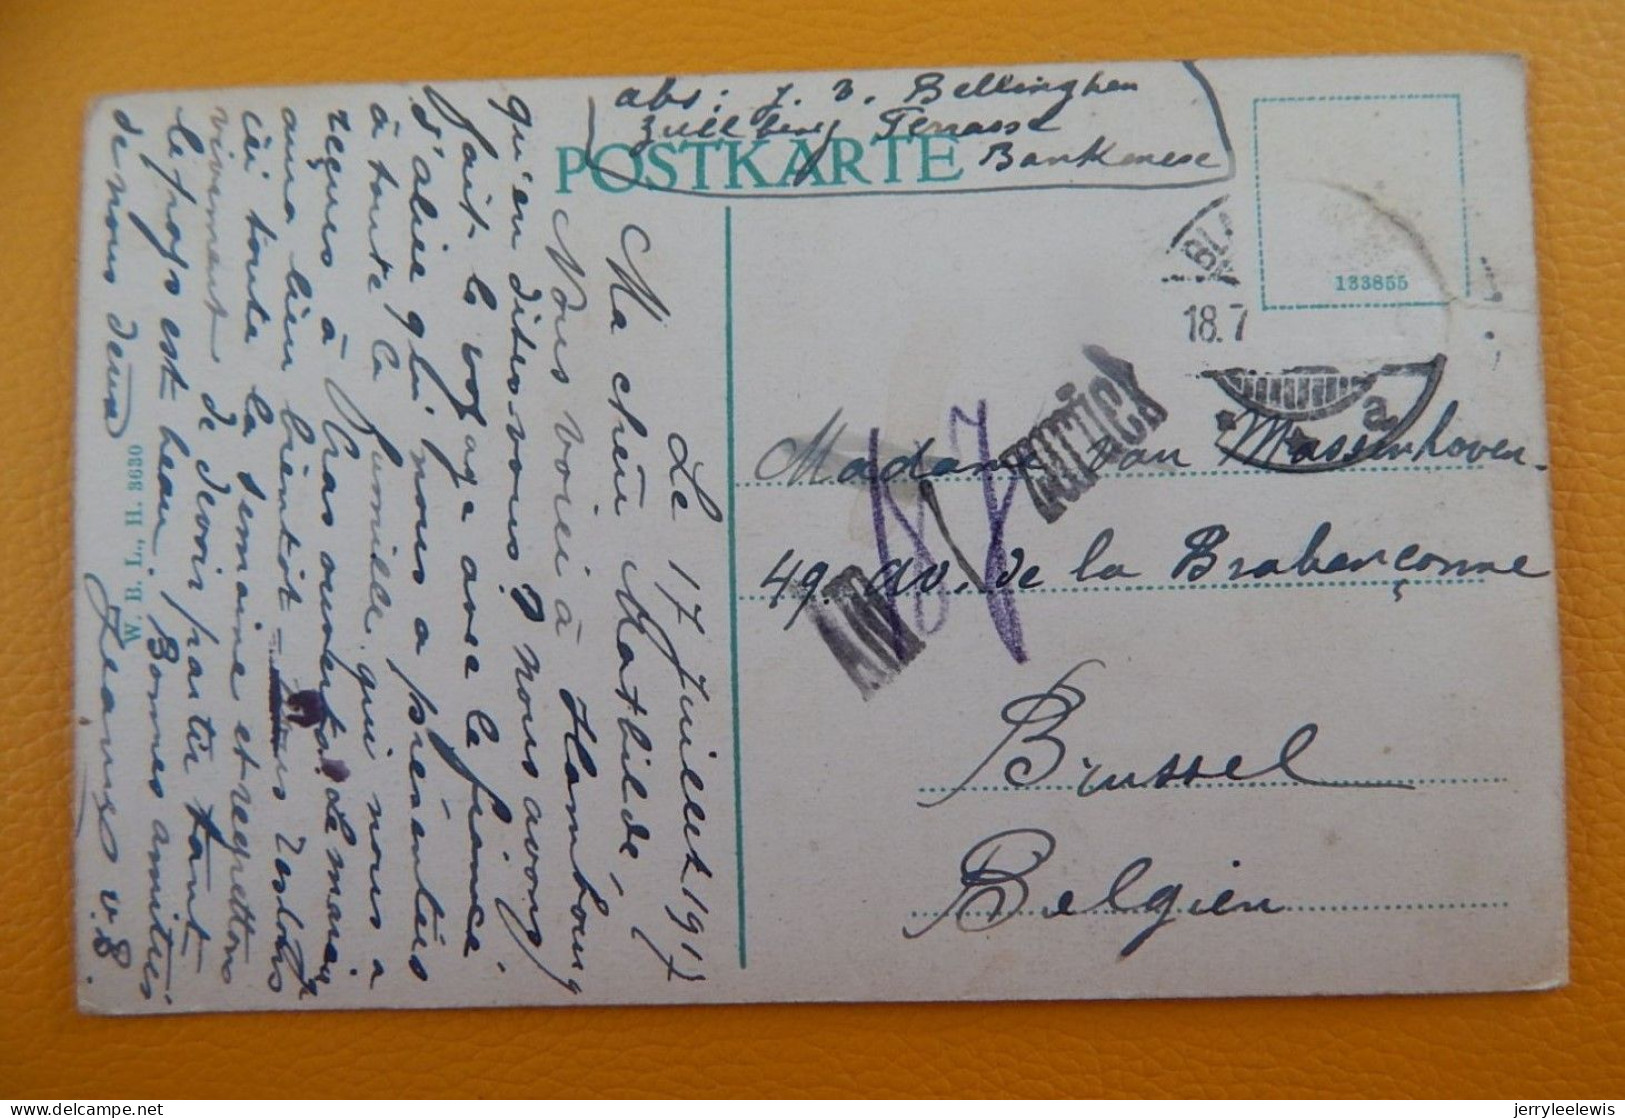 abs: J. v. Bellinghen
Züllberg Terrasse
Bankenese
POSTKARTE
133855
BLA
18.7
a
Zurück
An
18 7
Madame van Massenhoven.
49. av. de la Brabançonne
Brussel
Belgien
W. B. L., H. 3630
Le 17 Juillet 1917
Ma chère Mathilde,
Nous voici à Hambourg
qu'en dites-vous? nous avons
fait le voyage avec le fiancé
d'Alice qui nous a présentés
à toute la famille qui nous a
reçus à bras ouverts. Le mariage
aura lieu bientôt nous restons
ici toute la semaine et regrettons
vivement de devoir partir tant
le pays est beau. Bonnes amitiés
de nous deux
Jeanne v. B.